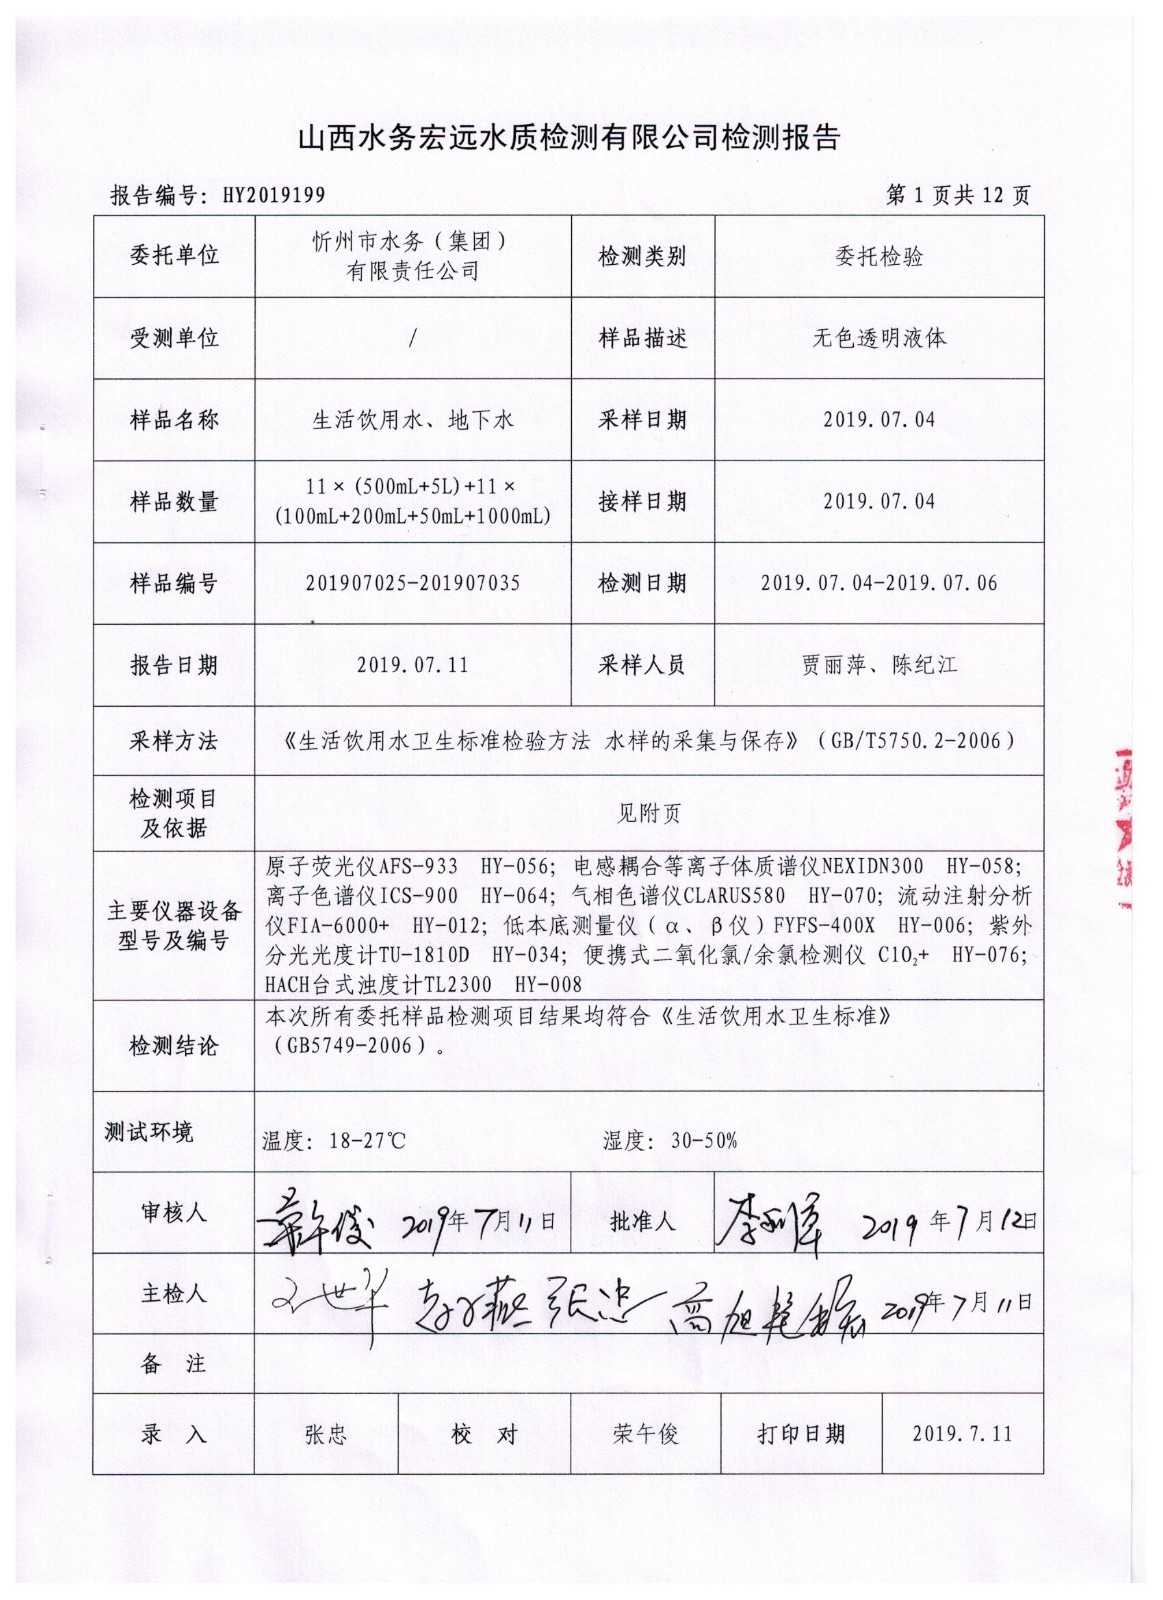 山西水务宏远水质检测有限公司检测报告
报告编号：HY2019199 第 1 页共 12 页
委托单位 忻州市水务（集团）
有限责任公司 检测类别 委托检验
受测单位 / 样品描述 无色透明液体
样品名称 生活饮用水、地下水 采样日期 2019.07.04
样品数量 11×(500mL+5L)+11×
(100mL+200mL+50mL+1000mL) 接样日期 2019.07.04
样品编号 201907025-201907035 检测日期 2019.07.04-2019.07.06
报告日期 2019.07.11 采样人员 贾丽萍、陈纪江
采样方法 《生活饮用水卫生标准检验方法 水样的采集与保存》（GB/T5750.2-2006）
检测项目
及依据 见附页
主要仪器设备
型号及编号
原子荧光仪AFS-933 HY-056；电感耦合等离子体质谱仪NEXIDN300 HY-058；
离子色谱仪ICS-900 HY-064；气相色谱仪CLARUS580 HY-070；流动注射分析
仪FIA-6000+ HY-012；低本底测量仪（α、β仪）FYFS-400X HY-006；紫外
分光光度计TU-1810D HY-034；便携式二氧化氯/余氯检测仪 ClO₂+ HY-076；
HACH台式浊度计TL2300 HY-008
检测结论
本次所有委托样品检测项目结果均符合《生活饮用水卫生标准》
（GB5749-2006）。
测试环境 温度：18-27℃ 湿度：30-50%
审核人 荣午俊 2019年7月11日 批准人 2019年7月12日
主检人 张忠 2019年7月11日
备 注
录 入 张忠 校 对 荣午俊 打印日期 2019.7.11